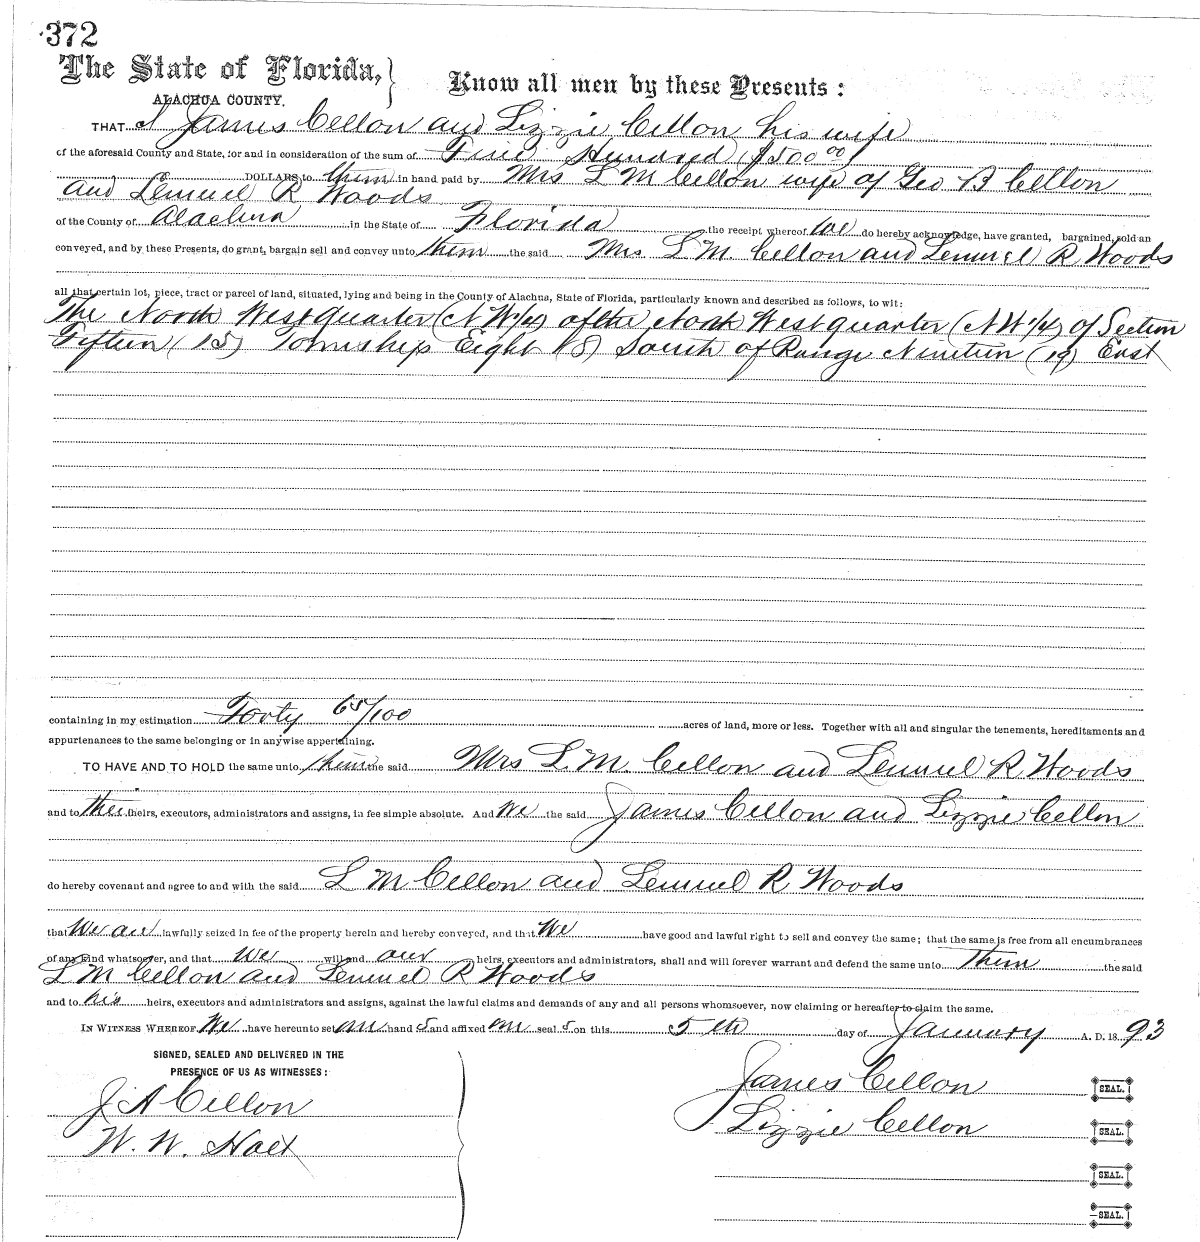 372
The State of Florida,
ALACHUA COUNTY.
Know all men by these Presents:
THAT I James Cellon and Lizzie Cellon his wife
of the aforesaid County and State, for and in consideration of the sum of Five Hundred ($500.00)
DOLLARS to them in hand paid by Mrs L M Cellon wife of Geo B Cellon
and Lemuel R Woods
of the County of Alachua in the State of Florida the receipt whereof we do hereby acknowledge, have granted, bargained, sold an
conveyed, and by these Presents, do grant, bargain sell and convey unto them the said Mrs L M. Cellon and Lemuel R Woods
all that certain lot, piece, tract or parcel of land, situated, lying and being in the County of Alachua, State of Florida, particularly known and described as follows, to wit:
The North West Quarter (N W 1/4) of the North West quarter (N W 1/4) of Section
Fifteen (15) Township Eight (8) South of Range Nineteen (19) East
containing in my estimation Forty 65/100 acres of land, more or less. Together with all and singular the tenements, hereditaments and
appurtenances to the same belonging or in anywise appertaining.
TO HAVE AND TO HOLD the same unto them the said Mrs L. M. Cellon and Lemuel R Woods
and to their heirs, executors, administrators and assigns, in fee simple absolute. And We the said James Cellon and Lizzie Cellon
do hereby covenant and agree to and with the said L M Cellon and Lemuel R Woods
that We are lawfully seized in fee of the property herein and hereby conveyed, and that We have good and lawful right to sell and convey the same; that the same is free from all encumbrances
of any kind whatsoever, and that We will and our heirs, executors and administrators, shall and will forever warrant and defend the same unto Them the said
L M Cellon and Lemuel R Woods
and to his heirs, executors and administrators and assigns, against the lawful claims and demands of any and all persons whomsoever, now claiming or hereafter to claim the same.
IN WITNESS WHEREOF We have hereunto set our hand s and affixed our seal s on this 5th day of January A. D. 1893
SIGNED, SEALED AND DELIVERED IN THE
PRESENCE OF US AS WITNESSES:
J A Cellon
W. W. Holt
James Cellon SEAL.
Lizzie Cellon SEAL.
SEAL.
SEAL.